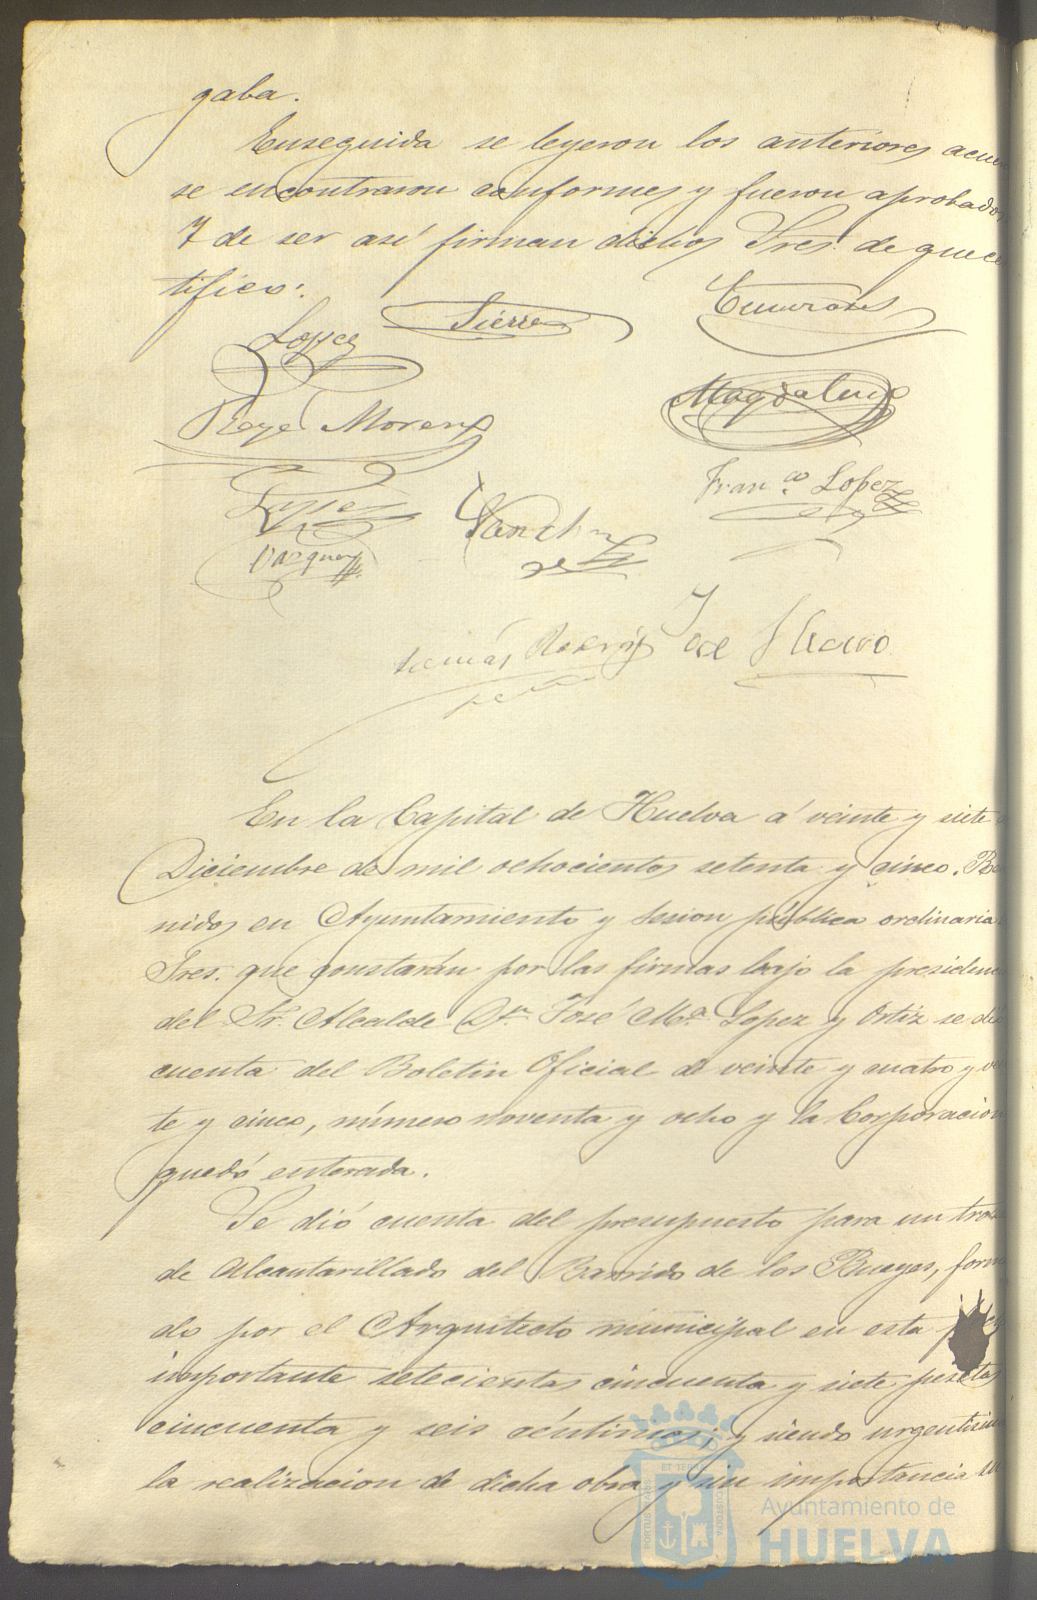 gaba.
Enseguida se leyeron los anteriores acue
se encontraron conformes y fueron aprobados
Y de ser asi firman dichos Sres. de que ce
tifico.
Sierra
Lopez
Magdalena
Reyes Moreno
Fran.co Lopez
Lopez
Sanchez
Vazquez
José
En la Capital de Huelva á veinte y siete
Diciembre de mil ochocientos setenta y cinco. Re
nidos en Ayuntamiento y sesion pública ordinaria
Sres. que constarán por las firmas bajo la presidenc
del Sr. Alcalde Dn. José Ma. Lopez y Ortiz se dió
cuenta del Boletin Oficial de veinte y cuatro y ve
te y cinco, número noventa y ocho y la Corporacion
quedó enterada.
Se dió cuenta del presupuesto para un troz
de Alcantarillado del Barrido de los Bueyes, forma
do por el Arquitecto municipal en esta
importante setecientas cincuenta y siete pesetas
cincuenta y seis céntimos; y siendo urgentisim
la realizacion de dicha obra y sin importancia su
PORTUS MARIS ET TERRAE CUSTODIA
Ayuntamiento de
HUELVA